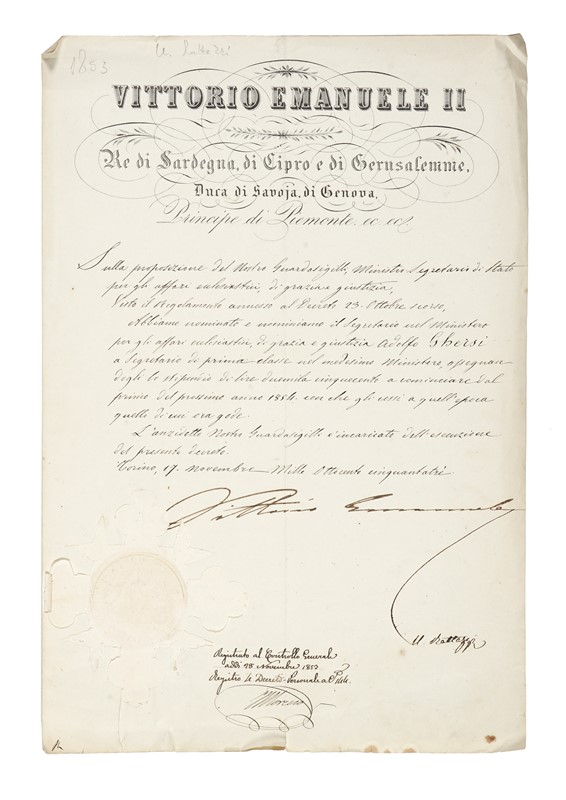 1853
U. Rattazzi
VITTORIO EMANUELE II
Re di Sardegna, di Cipro e di Gerusalemme,
Duca di Savoja, di Genova,
Principe di Piemonte, ec. ec.
Sulla proposizione del Nostro Guardasigilli, Ministro Segretario di Stato
per gli affari ecclesiastici, di grazia e giustizia,
Visto il Regolamento annesso al Decreto 23 Ottobre scorso,
Abbiamo nominato e nominiamo il Segretario nel Ministero
per gli affari ecclesiastici, di grazia e giustizia Adolfo Ghersi
a Segretario di prima classe nel medesimo Ministero, assegnan
dogli lo stipendio di lire duemila cinquecento a cominciare dal
primo del prossimo anno 1854, con che gli cessi a quell'epoca
quello di cui ora gode.
L'anzidetto Nostro Guardasigilli è incaricato dell'esecuzione
del presente decreto.
Torino, 17 novembre Mille Ottocento cinquantatrè
Vittorio Emanuele
U. Rattazzi
Registrato al Controllo Generale
addì 28 Novembre 1853
Registro 4 Decreti Personale a C.